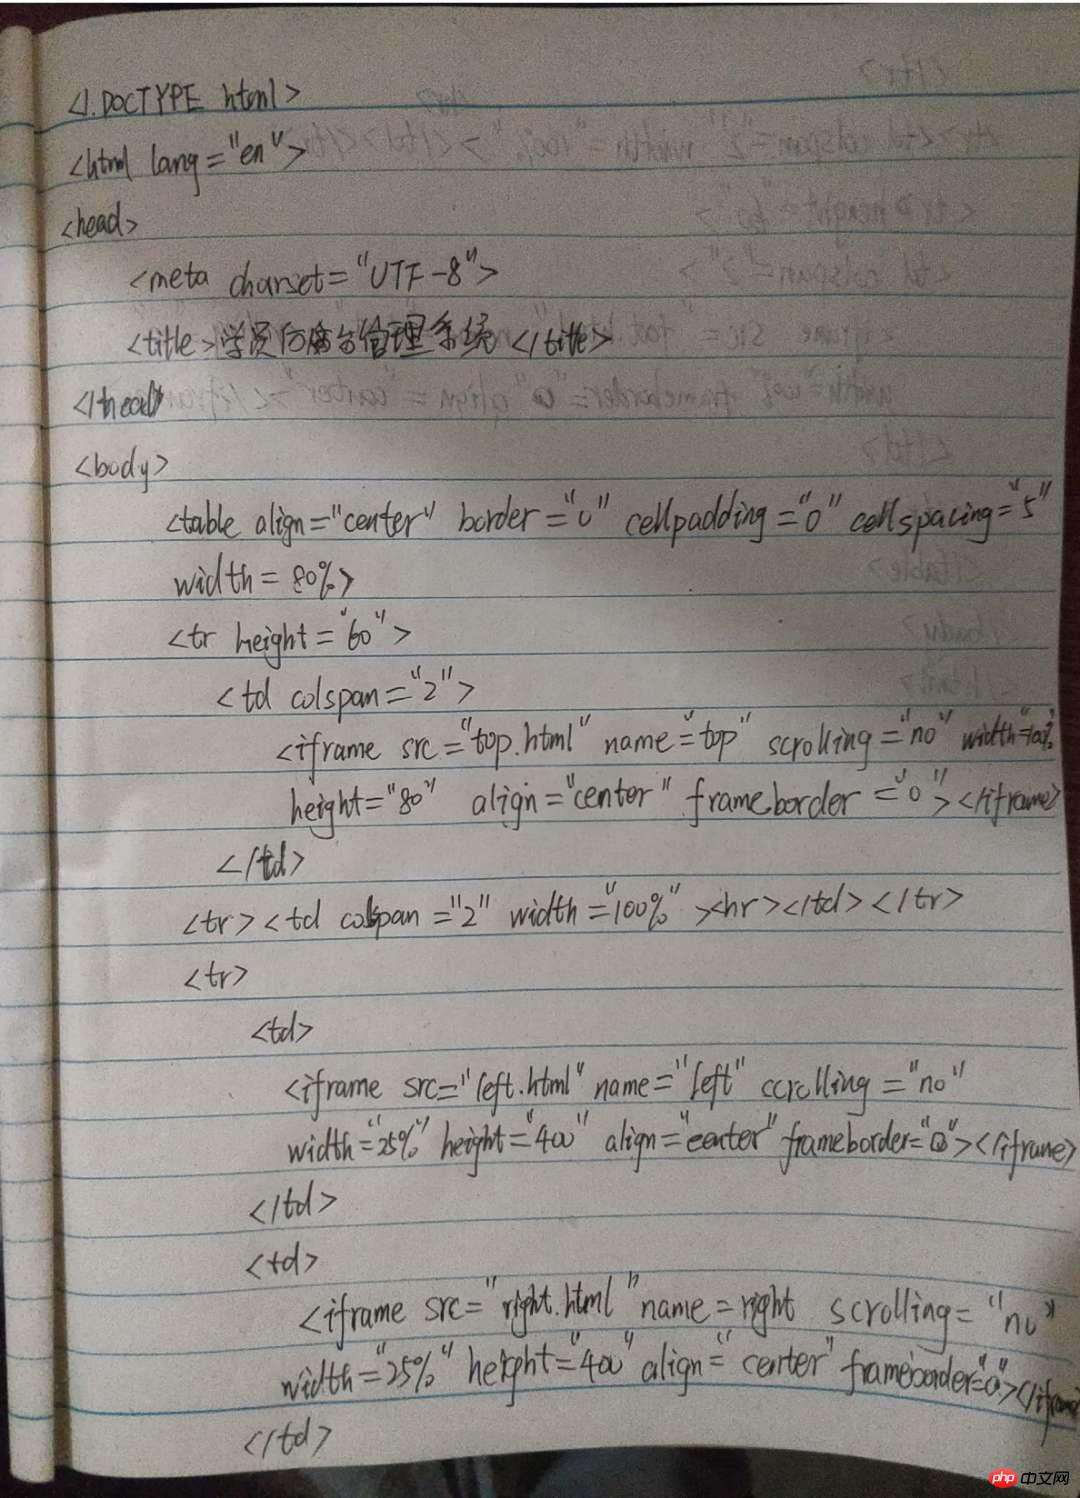 <!DOCTYPE html>
<html lang="en">
<head>
<meta charset="UTF-8">
<title>学员后台管理系统</title>
</head>
<body>
<table align="center" border="0" cellpadding="0" cellspacing="5"
width=80%>
<tr height="60">
<td colspan="2">
<iframe src="top.html" name="top" scrolling="no" width="100%
height="80" align="center" frameborder="0"></iframe>
</td>
<tr><td colspan="2" width="100%"><hr></td></tr>
<tr>
<td>
<iframe src="left.html" name="left" scrolling="no"
width="25%" height="400" align="center" frameborder="0"></iframe>
</td>
<td>
<iframe src="right.html" name=right scrolling="no"
width="25%" height="400" align="center" frameborder="0"></iframe
</td>
php 中文网